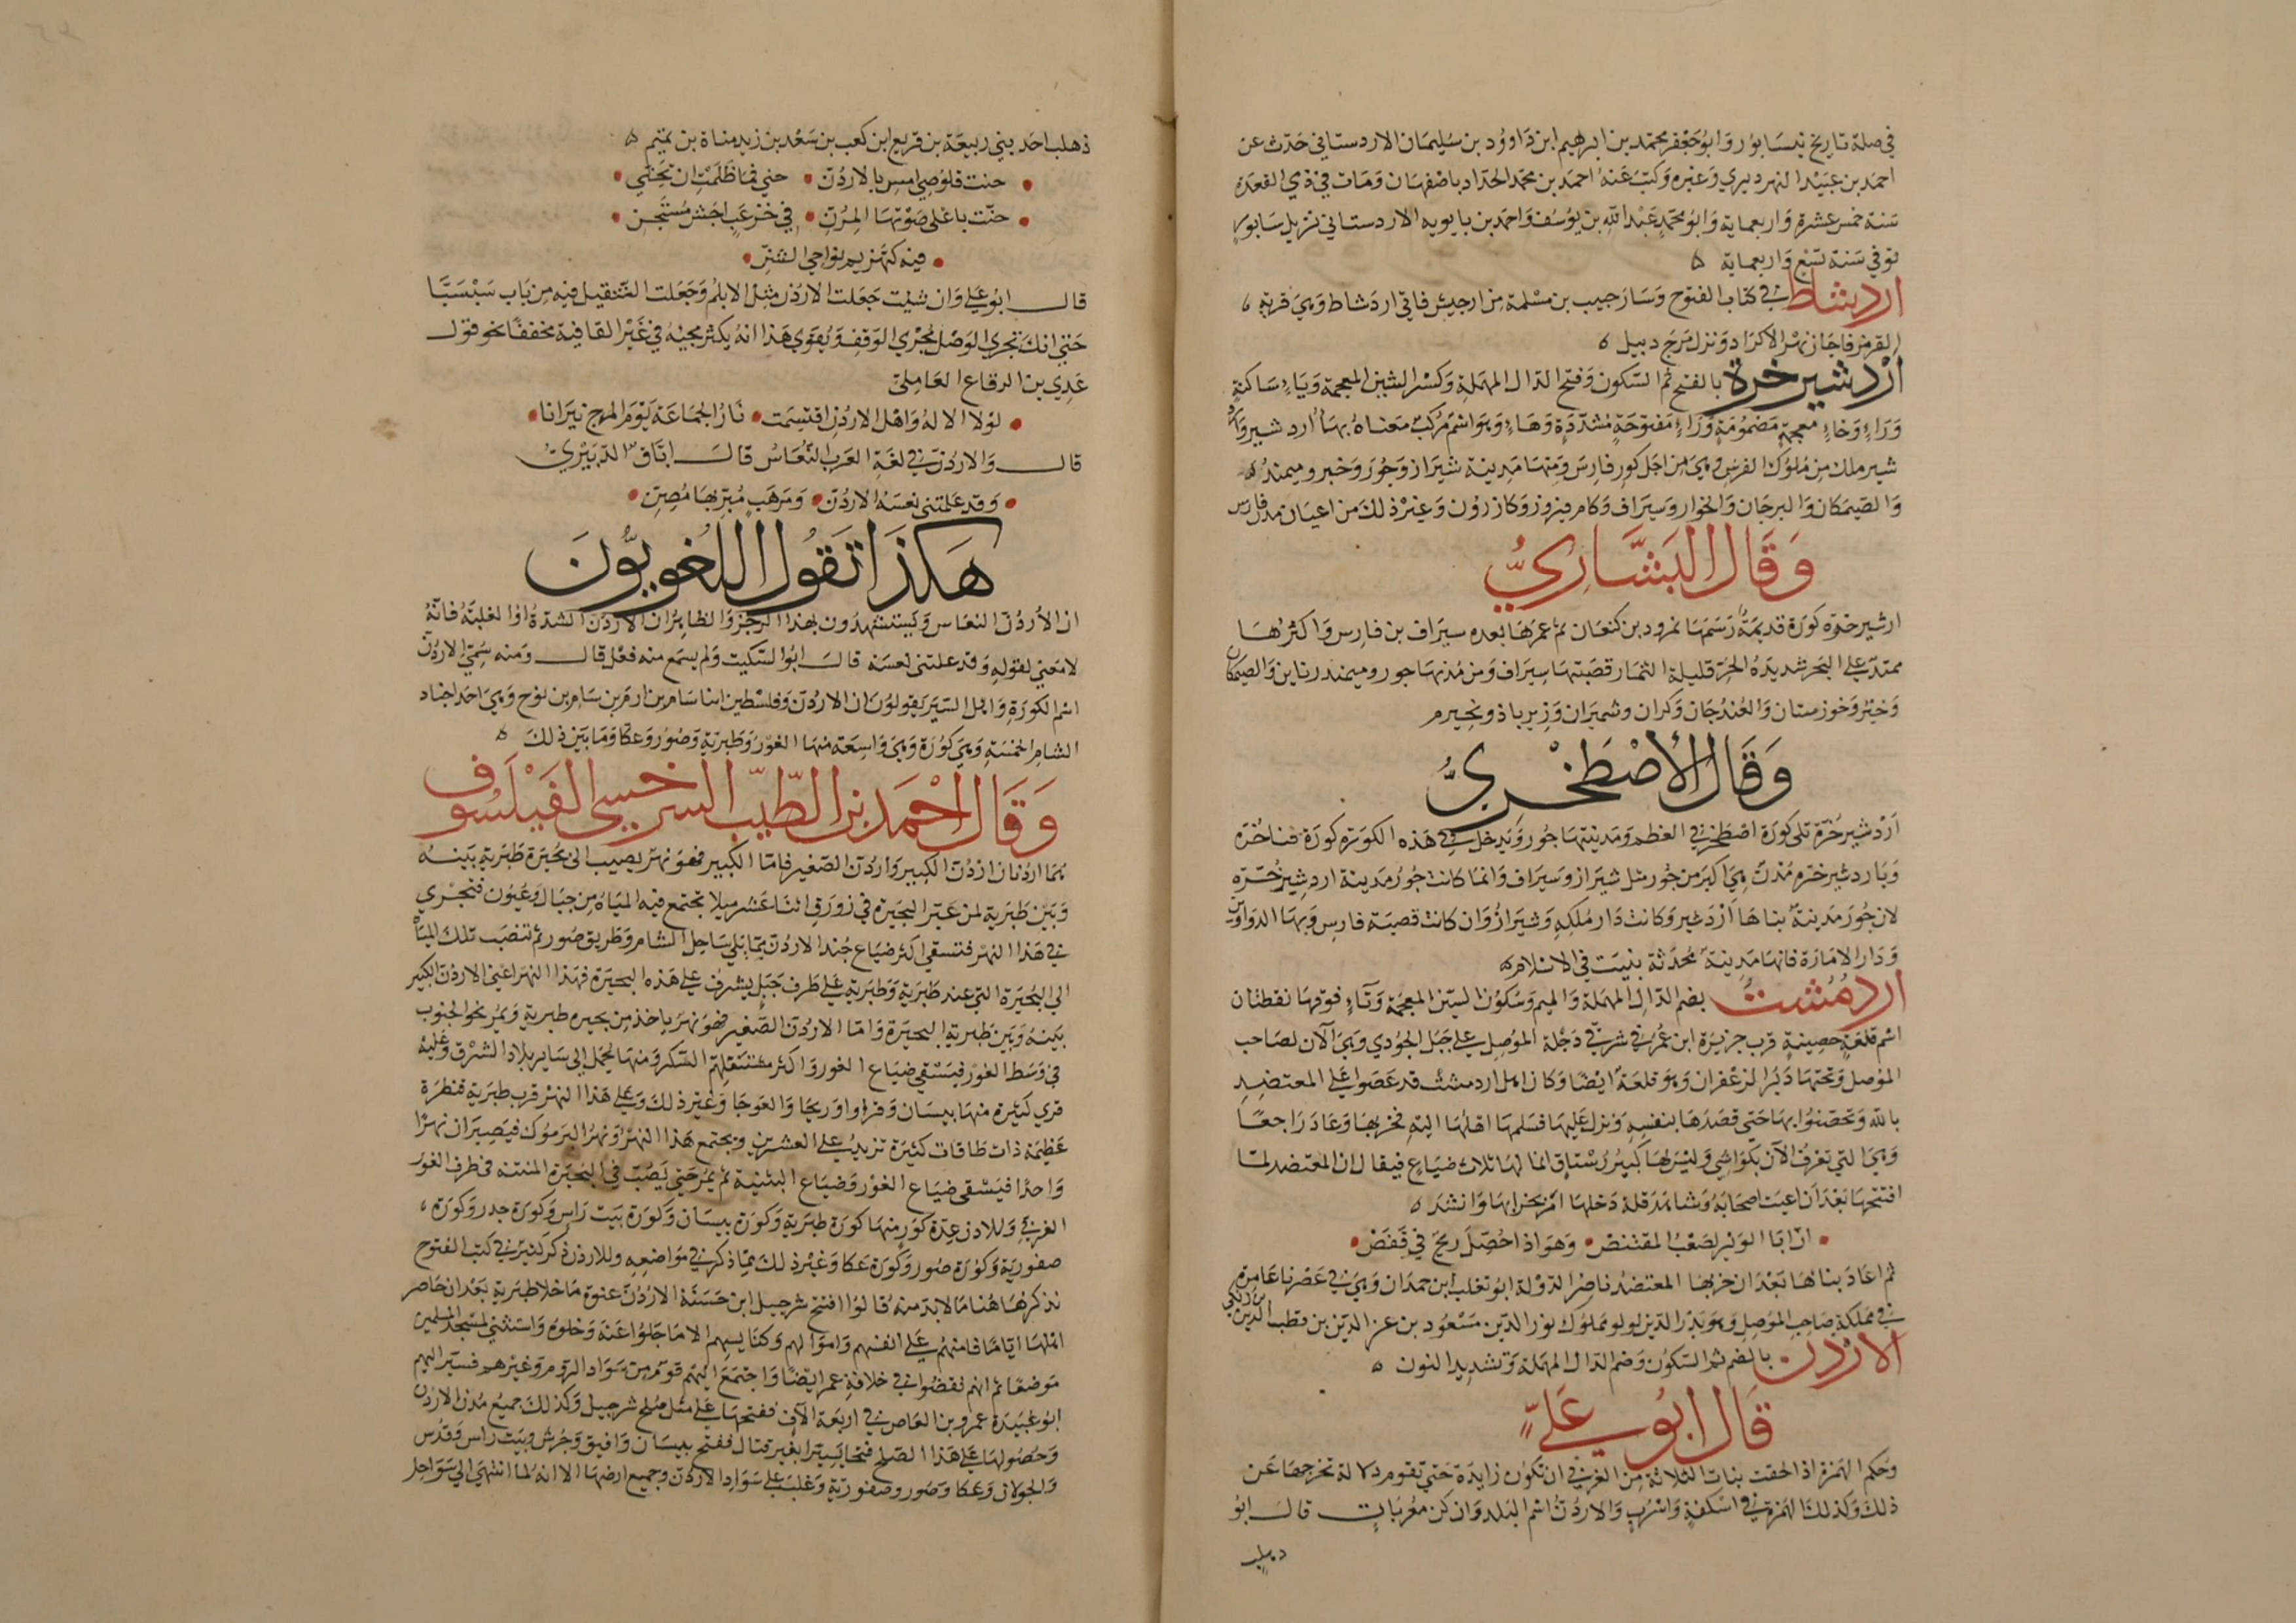 في صلة تاريخ نيسابور وابو جعفر محمد بن ابرهيم ابن داوود بن سليمان الاردستاني حدث عن
احمد بن عبيد النهرديري وغيره وكتب عنه احمد بن محمد الحداد باصفهان ومات في ذي القعدة
سنة خمس عشرة واربعماية وابو محمد عبد الله بن يوسف واحمد بن بابويه الاردستاني نزيل سابور
توفي سنة تسع واربعماية
اردشاط في كتاب الفتوح وسار حبيب بن مسلمة من ارجيش فاتي اردشاط وهي قرية
القرمز فاجاز نهر الاكراد ونزل مرج دبيل
اردشير خرة بالفتح ثم السكون وفتح الدال المهملة وكسر الشين المعجمة وياء ساكنة
وراء وخاء معجمة مضمومة وراء مفتوحة مشددة وهاء وهو اسم مركب معناه بهاء اردشير وارد
شير ملك من ملوك الفرس وهي من اجل كور فارس ومنها مدينة شيراز وجور وخبر وميمند
والصيمكان والبرجان والخوار وسيراف وكام فيروز وكازرون وغير ذلك من اعيان مدن فارس
وقال البشاري
ارشير خره كورة قديمة رسمها نمرود بن كنعان ثم عمرها بعده سيراف بن فارس واكثرها
ممتد علي البحر شديدة الحر قليلة الثمار قصبتها سيراف ومن مدنها جور وميمند ناين والصيمكان
وخبر وخوزستان والغندجان وكران وشميران وزيرباذ ونجيرم
وقال الاصطخري
اردشير خرة تلي كورة اصطخر في العظم ومدينتها جور ويدخل في هذه الكورة كورة فناخره
وباردشير خره مدن هي اكبر من جور مثل شيراز وسيراف وانما كانت جور مدينة اردشير خره
لان جور مدينة بناها اردشير وكانت دار ملكه وشيراز وان كانت قصبة فارس وبها الدواوين
ودار الامارة فانها مدينة محدثة بنيت في الاسلام
اردمشت بضم الدال المهملة والميم وسكون الشين المعجمة وتاء فوقها نقطتان
اسم قلعة حصينة قرب جزيرة ابن عمر في شرقي دجلة الموصل علي جبل الجودي وهي الآن لصاحب
الموصل وتحتها دير الزعفران وهو قلعة ايضا وكان اهل اردمشت قد عصوا علي المعتضد
بالله وتحصنوا بها حتي قصدها بنفسه ونزل عليها فسلمها اهلها اليه فخربها وعاد راجعا
وهي التي تعرف الآن بكواشي وليس لها كبير رستاق انما لها ثلاث ضياع فيقال ان المعتضد لما
افتتحها بعد ان اعيت اصحابه وشاهد قلة دخلها امر بخرابها وانشد
ان ابا الوبر لصعب المقتنص وهو اذا حصل ريح في قفص
ثم اعاد بناها بعد ان خربها المعتضد ناصر الدولة ابو تغلب ابن حمدان وهي في عصرنا عامرة
في مملكة صاحب الموصل وهو بدر الدين لولو مملوك نور الدين مسعود بن عز الدين بن قطب الدين بن زنكي
الاردن بالضم ثم السكون وضم الدال المهملة وتشديد النون
قال ابو علي
وحكم الهمزة اذا لحقت بنات الثلاثة من العربي ان تكون زايدة حتي تقوم دلالة تخرجها عن
ذلك وكذلك الهمزة في اسكفة واسرب والاردن اسم البلد وان كن معربات قال ابو
دهلب
ذهلب احد بني ربيعة بن قريع ابن كعب بن سعد بن زيد مناة بن تميم
حنت قلوصي امس بالاردن حني فما ظلمت ان تحني
حنت باعلي صوتها المرن في خرعب اجش مستجن
فيه كتهزيم نواحي الشن
قال ابو علي وان شيت جعلت الاردن مثل الابلم وجعلت التثقيل فيه من باب سبسبا
حتي انك تجري الوصل مجري الوقف ويقوي هذا انه يكثر مجيه في غير القافية مخففا نحو قول
عدي بن الرقاع العاملي
لولا الاله واهل الاردن اقتسمت نار الجماعة يوم المرج نيرانا
قال والاردن في لغة العرب النعاس قال اباق الدبيري
وقد علتني نعسة الاردن وموهب مبز بها مصن
هكذا تقول اللغويون
ان الاردن النعاس ويستشهدون بهذا الرجز والظاهر ان الاردن الشدة او الغلبة فانه
لا معني لقوله وقد علتني نعسة قال ابو السكيت ولم يسمع منه فعل قال ومنه سمي الاردن
اسم الكورة واهل السير يقولون ان الاردن وفلسطين ابنا سام بن ارم بن سام بن نوح وهي احد اجناد
الشام الخمسة وهي كورة وهي واسعة منها الغور وطبرية وصور وعكا وما بين ذلك
وقال احمد بن الطيب السرخسي الفيلسوف
هما اردنان اردن الكبير واردن الصغير فاما الكبير فهو نهر يصب الي بحيرة طبرية بينه
وبين طبرية لمن عبر البحيرة في زورق اثنا عشر ميلا تجتمع فيه المياه من جبال وعيون فتجري
في هذا النهر فتسقي اكثر ضياع جند الاردن مما يلي ساحل الشام وطريق صور ثم تنصب تلك المياه
الي البحيرة التي عند طبرية وطبرية علي طرف جبل يشرف علي هذه البحيرة فهذا النهر اعني الاردن الكبير
بينه وبين طبرية البحيرة واما الاردن الصغير فهو نهر ياخذ من بحيره طبرية ويمر نحو الجنوب
في وسط الغور فيسقي ضياع الغور واكثر مستغلهم السكر ومنها يحمل الي ساير بلاد الشرق وعليه
قري كثيرة منها بيسان وقراوا واريحا والعوجا وغير ذلك وعلي هذا النهر قرب طبرية قنطرة
عظيمة ذات طاقات كثيرة تزيد علي العشرين ويجتمع هذا النهر ونهر اليرموك فيصيران نهرا
واحدا فيسقي ضياع الغور وضياع البثنية ثم يمر حتي يصب في البحيرة المنتنة في طرف الغور
الغربي وللاردن عدة كور منها كورة طبرية وكورة بيسان وكورة بيت راس وكورة جدر وكورة
صفورية وكورة صور وكورة عكا وغير ذلك مما ذكر في مواضعه وللاردن ذكر كثير في كتب الفتوح
نذكرها هنا ما لا بد منه قالوا افتتح شرحبيل ابن حسنة الاردن عنوة ما خلا طبرية بعد ان حاصر
اهلها اياما فامنهم علي انفسهم واموالهم وكنايسهم الا ما جلوا عنه وخلوه واستثني لمسجد المسلمين
موضعا ثم انهم نقضوا في خلافة عمر ايضا واجتمع اليهم قوم من سواد الروم وغيرهم فسير اليهم
ابو عبيدة عمرو بن العاص في اربعة آلاف ففتحها علي مثل صلح شرحبيل وكذلك جميع مدن الاردن
وحصونها علي هذا الصلح فتحا يسيرا بغير قتال ففتح بيسان وافيق وجرش وبيت راس وقدس
والجولان وعكا وصور وصفورية وغلب علي سواد الاردن وجميع ارضها الا انه لما انتهي الي سواحل